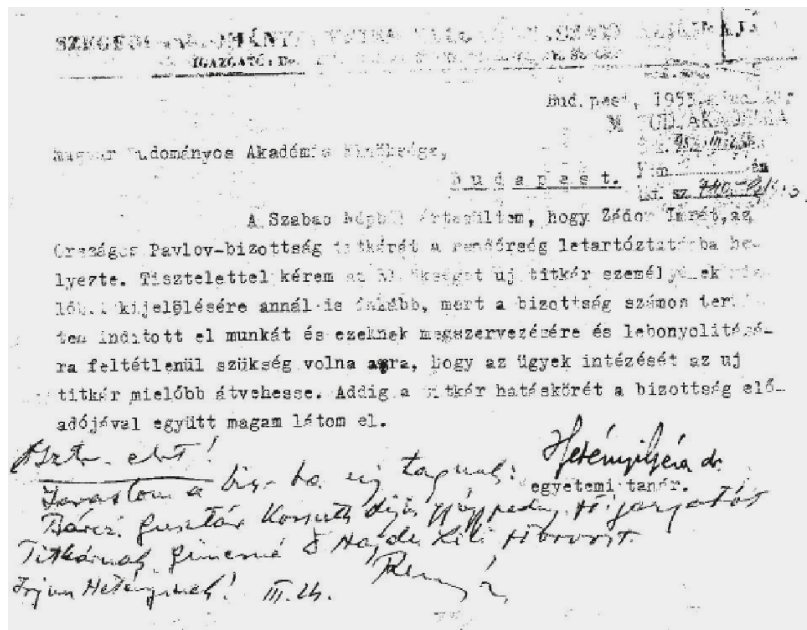 IGAZGATÓ: Dr.
1953.
M. TUD. AKADÉMIA
Magyar Tudományos Akadémia Elnöksége,
Budapest.
A Szabad Népből értesültem, hogy Zádor Imrét, az
Országos Pavlov-bizottság titkárét a rendőrség letartóztatásba he-
lyezte. Tisztelettel kérem az Elnökséget uj titkár személyének mie-
lőbbi kijelölésére annál is inkább, mert a bizottság számos terüle-
ten indított el munkát és ezeknek megszervezésére és lebonyolitásá-
ra feltétlenül szükség volna arra, hogy az ügyek intézését az uj
titkár mielőbb átvehesse. Addig a titkár hatáskörét a bizottság elő-
adójával együtt magam látom el.
Hetényi Géza dr.
egyetemi tanár.
elvt!
Javaslom a biz-ba uj tagnak:
Bárczi Gusztáv Kossuth díjas gyógyped. főigazgatót
Titkárnak Hajdu Lili főorvost.
Irjon Hetényinek! III.